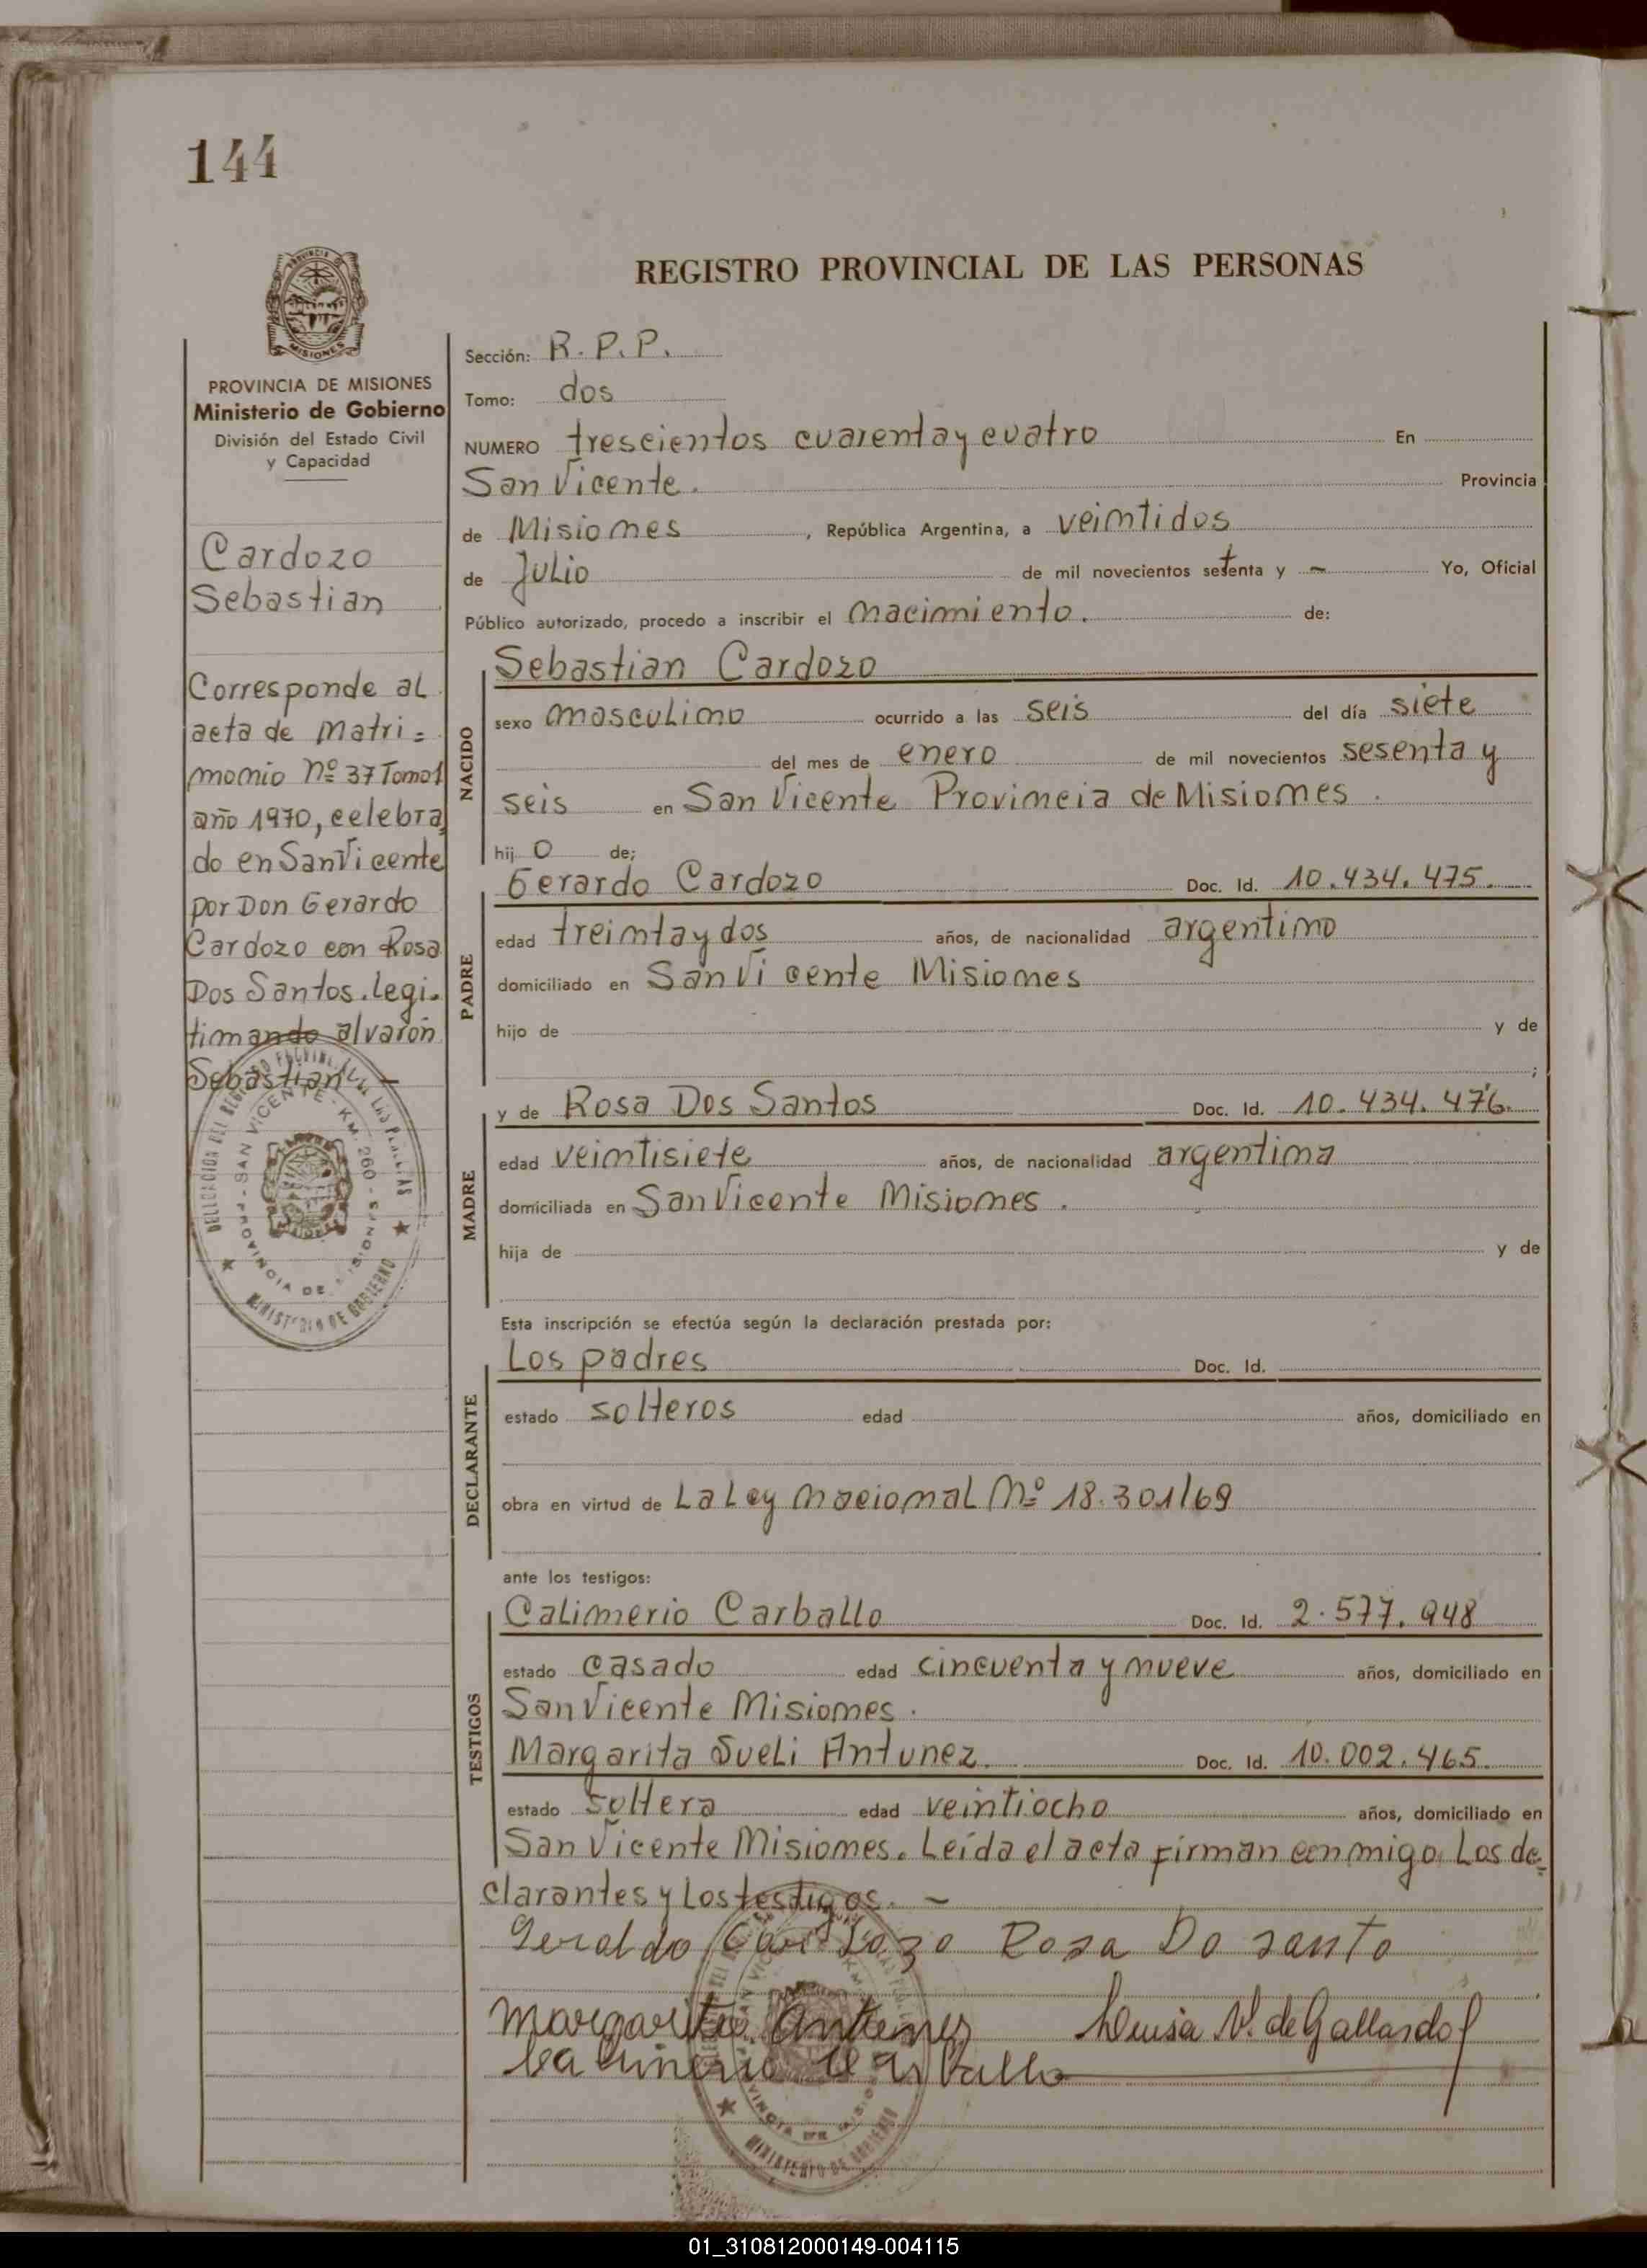 144
REGISTRO PROVINCIAL DE LAS PERSONAS
PROVINCIA DE MISIONES
Ministerio de Gobierno
División del Estado Civil
y Capacidad
Cardozo
Sebastian
Corresponde al
acta de Matri=
monio Nº 37 Tomo 1
año 1970, celebra
do en San Vicente
por Don Gerardo
Cardozo con Rosa
Dos Santos. Legi-
timando al varón
Sebastian. -
DELEGACION DEL REGISTRO PROVINCIAL DE LAS PERSONAS
SAN VICENTE - KM. 260 -
PROVINCIA DE MISIONES
MINISTERIO DE GOBIERNO
Sección: R. P. P.
Tomo: dos
NUMERO trescientos cuarenta y cuatro En
San Vicente. Provincia
de Misiones, República Argentina, a veintidos
de Julio de mil novecientos setenta y - Yo, Oficial
Público autorizado, procedo a inscribir el nacimiento. de:
NACIDO
Sebastian Cardozo
sexo masculino ocurrido a las seis del día siete
del mes de enero de mil novecientos sesenta y
seis en San Vicente Provincia de Misiones.
hijo de;
PADRE
Gerardo Cardozo Doc. Id. 10.434.475.
edad treinta y dos años, de nacionalidad argentino
domiciliado en San Vicente Misiones
hijo de y de
;
MADRE
y de Rosa Dos Santos Doc. Id. 10.434.476.
edad veintisiete años, de nacionalidad argentina
domiciliada en San Vicente Misiones.
hija de y de
Esta inscripción se efectúa según la declaración prestada por:
DECLARANTE
Los padres Doc. Id.
estado solteros edad años, domiciliado en
obra en virtud de La Ley Nacional Nº 18.301/69
ante los testigos:
TESTIGOS
Calimerio Carballo Doc. Id. 2.577.948
estado casado edad cincuenta y nueve años, domiciliado en
San Vicente Misiones.
Margarita Sueli Antunez. Doc. Id. 10.002.465.
estado soltera edad veintiocho años, domiciliado en
San Vicente Misiones. Leída el acta firman conmigo Los de=
clarantes y Los testigos. -
Geraldo Cardozo Rosa Do santo
Margarita Antunez Luisa V. de Gallardo
Calimerio Carballo
MINISTERIO DE GOBIERNO
01_310812000149-004115